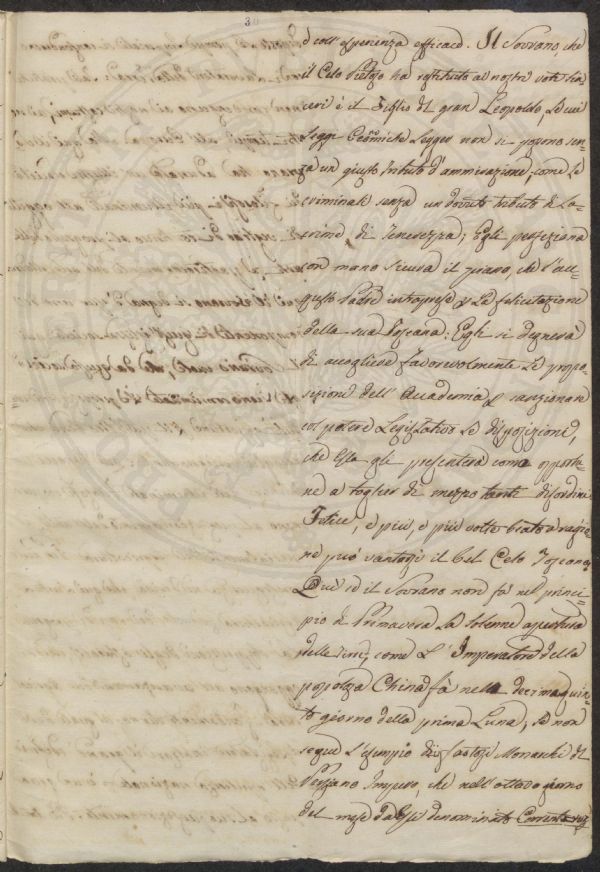 30
e coll'esperienza efficace. Il Sovrano, che
il Celo Pietoso ha restituito ai nostri voti sin-
ceri è il Figlio del gran Leopoldo, le cui
Leggi Economiche Legger non si possono sen-
za un giusto tributo d'ammirazione, come le
criminali senza un dovuto tributo di La-
crime di tenerezza; Egli perfeziona
con mano sicura il piano, che l'au-
gusto Padre intraprese p la felicitazione
della sua Toscana: Egli si degnerà
di accogliere favorevolmente le propo-
sizioni dell'Accademia, e sanzionare
col potere Legislativo le disposizioni,
che Essa gli presenterà come opportu-
ne a toglier di mezzo tanti disordini.
Felice, e più, e più volte beato a ragio-
ne può vantarsi il bel Celo Toscano.
Quì se il Sovrano non fà nel princi-
pio di Primavera la solenne apertura
delle terre, come l'Imperatore della
popolosa China fà nella decimaquin-
to giorno della prima Luna, se non
segue l'esempio dei fastosi Monarchi del
Persiano Impero, che nell'ottavo giorno
del mese da Essi denominato